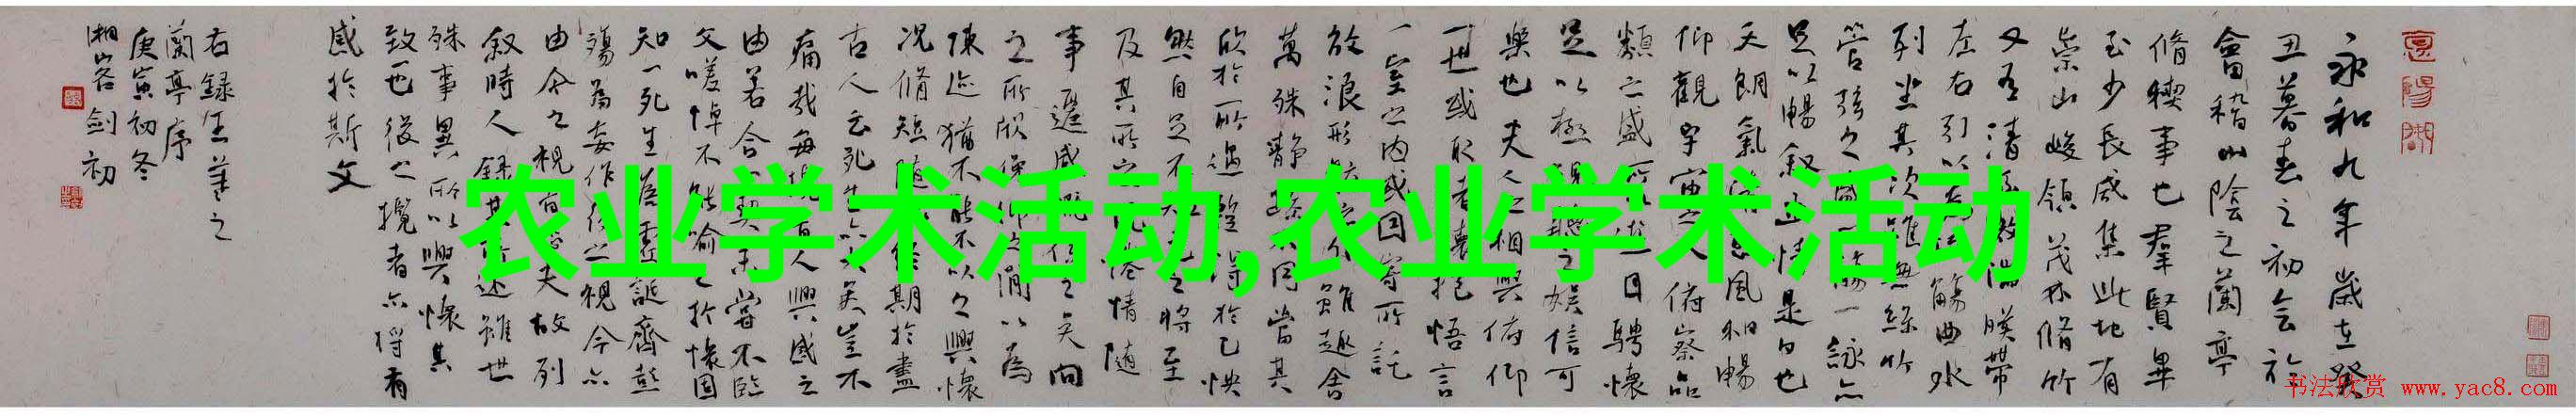 永和九年歲在癸
丑暮春之初会於
會稽山陰之蘭亭
脩稧事也羣賢畢
至少長咸集此地有
崇山峻領茂林脩竹
又有清流激湍暎帶
左右引以為流觴曲水
列坐其次雖無絲竹
管弦之盛一觴一詠亦
足以暢叙幽情是日也
天朗氣清惠風和暢
仰觀宇宙之大俯察品
類之盛所以遊目騁懷
足以極視聽之娱信可
樂也夫人之相與俯仰
一世或取諸懷抱悟言
一室之内或因寄所託
放浪形骸之外雖趣舍
萬殊静躁不同當其
欣於所遇蹔得於己怏
然自足不知老之將至
及其所之既惓情隨
事遷感慨係之矣向
之所欣俛仰之間以為
陳迹猶不能不以之興懷
况脩短隨化終期於盡
古人云死生亦大矣豈不
痛哉每攬昔人興感之
由若合一契未嘗不臨
文嗟悼不能喻之於懷固
知一死生為虚誕齊彭
殤為妄作後之視今亦
由今之視昔悲夫故列
叙時人録其所述雖世
殊事異所以興懷其
致一也後之攬者亦将有
感於斯文
右録王羲之
蘭亭序
庚寅初冬
劍初
农业学术活动,农业学术活动
书法欣赏 www.yac8.com